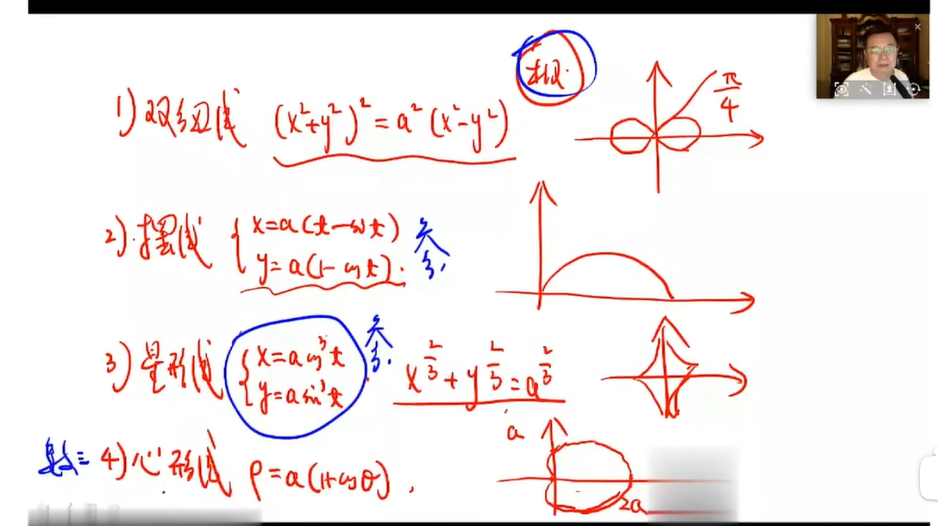 极.
1) 双纽线 (x²+y²)²=a²(x²-y²)
π/4
2). 摆线 { x=a(t-sin t)
y=a(1-cos t).
参
3) 星形线 { x=a cos³t
y=a sin³t.
参
x^(2/3)+y^(2/3)=a^(2/3)
数三 4) 心形线 ρ=a(1+cosθ).
a
2a